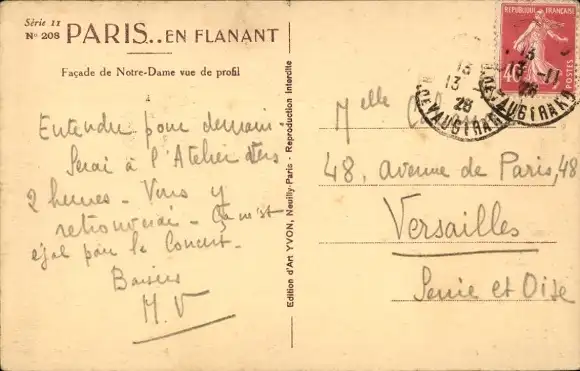 Série 11
N° 208 PARIS.. EN FLANANT
Façade de Notre-Dame vue de profil
Entendu pour demain.
Serai à l'Atelier vers
2 heures - Vous y
retrouverai - Ça m'est
égal pour le Concert.
Baisers
M. V
Edition d'Art YVON, Neuilly-Paris - Reproduction interdite
REPUBLIQUE FRANÇAISE
40
POSTES
13
13 -11
28
DE VAUGIRARD
Melle
48, avenue de Paris, 48
Versailles
Seine et Oise